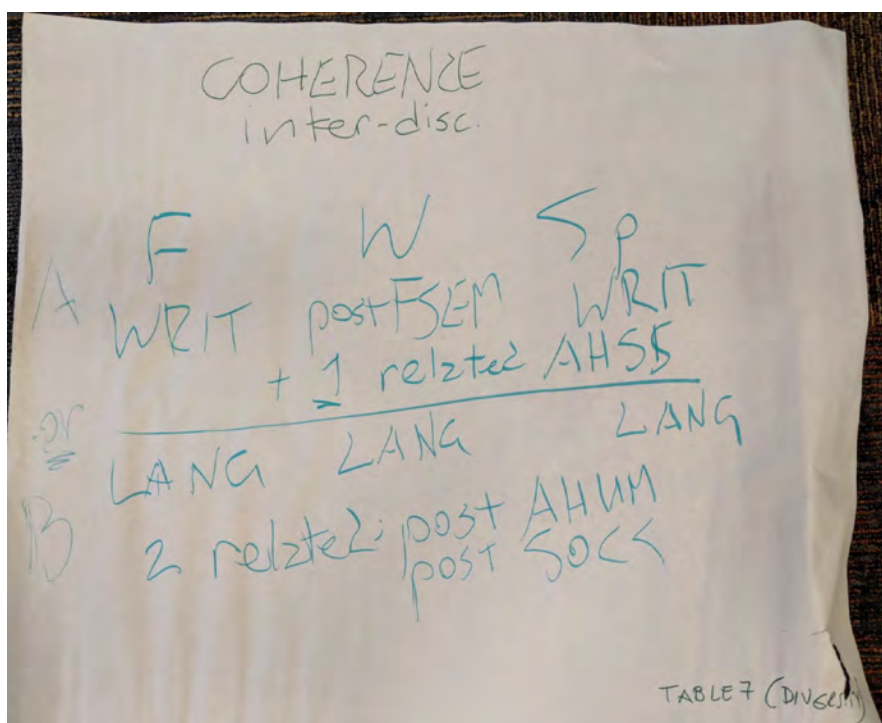 COHERENCE
inter-disc.
F W Sp
A WRIT postFSEM WRIT
+ 1 related AHSS
or
LANG LANG LANG
B 2 related: post AHUM
post SOCS
TABLE 7 (DIVERSITY)